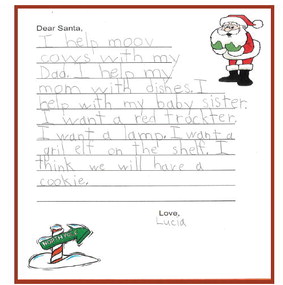 Dear Santa,
I help moov
cows with my
Dad. I help my
mom with dishes. I
help with my baby sister.
I want a red trockter.
I want a lamp. I want a
gril elf on the shelf. I
think we will have a
cookie.
Love,
Lucia
NORTH POLE